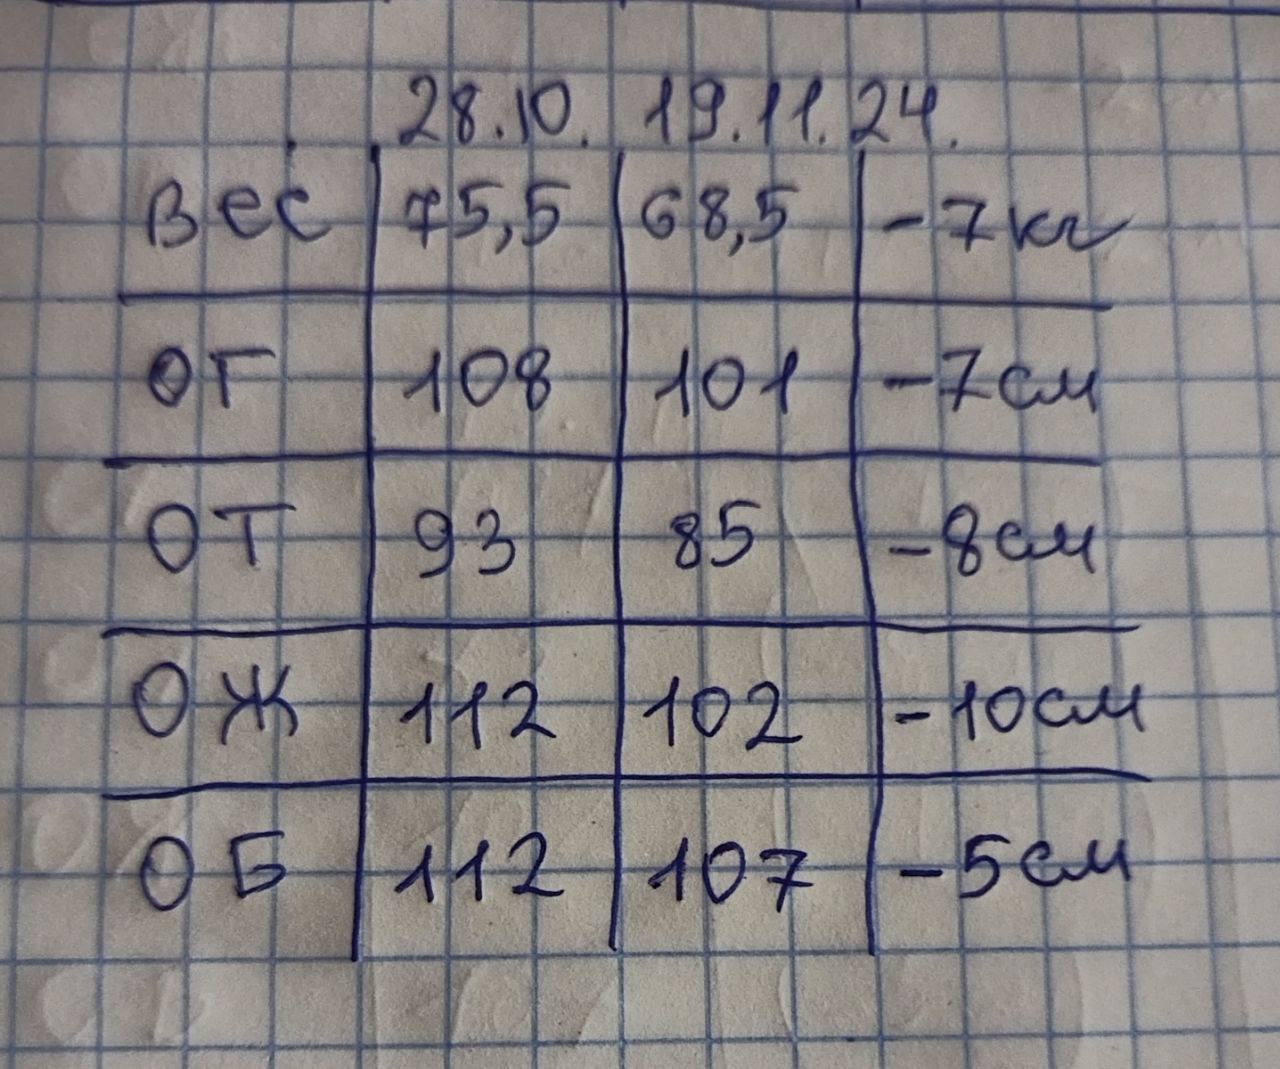 28.10. 19.11.24.
Вес 75,5 68,5 -7кг
ОГ 108 101 -7см
ОТ 93 85 -8см
ОЖ 112 102 -10см
ОБ 112 107 -5см